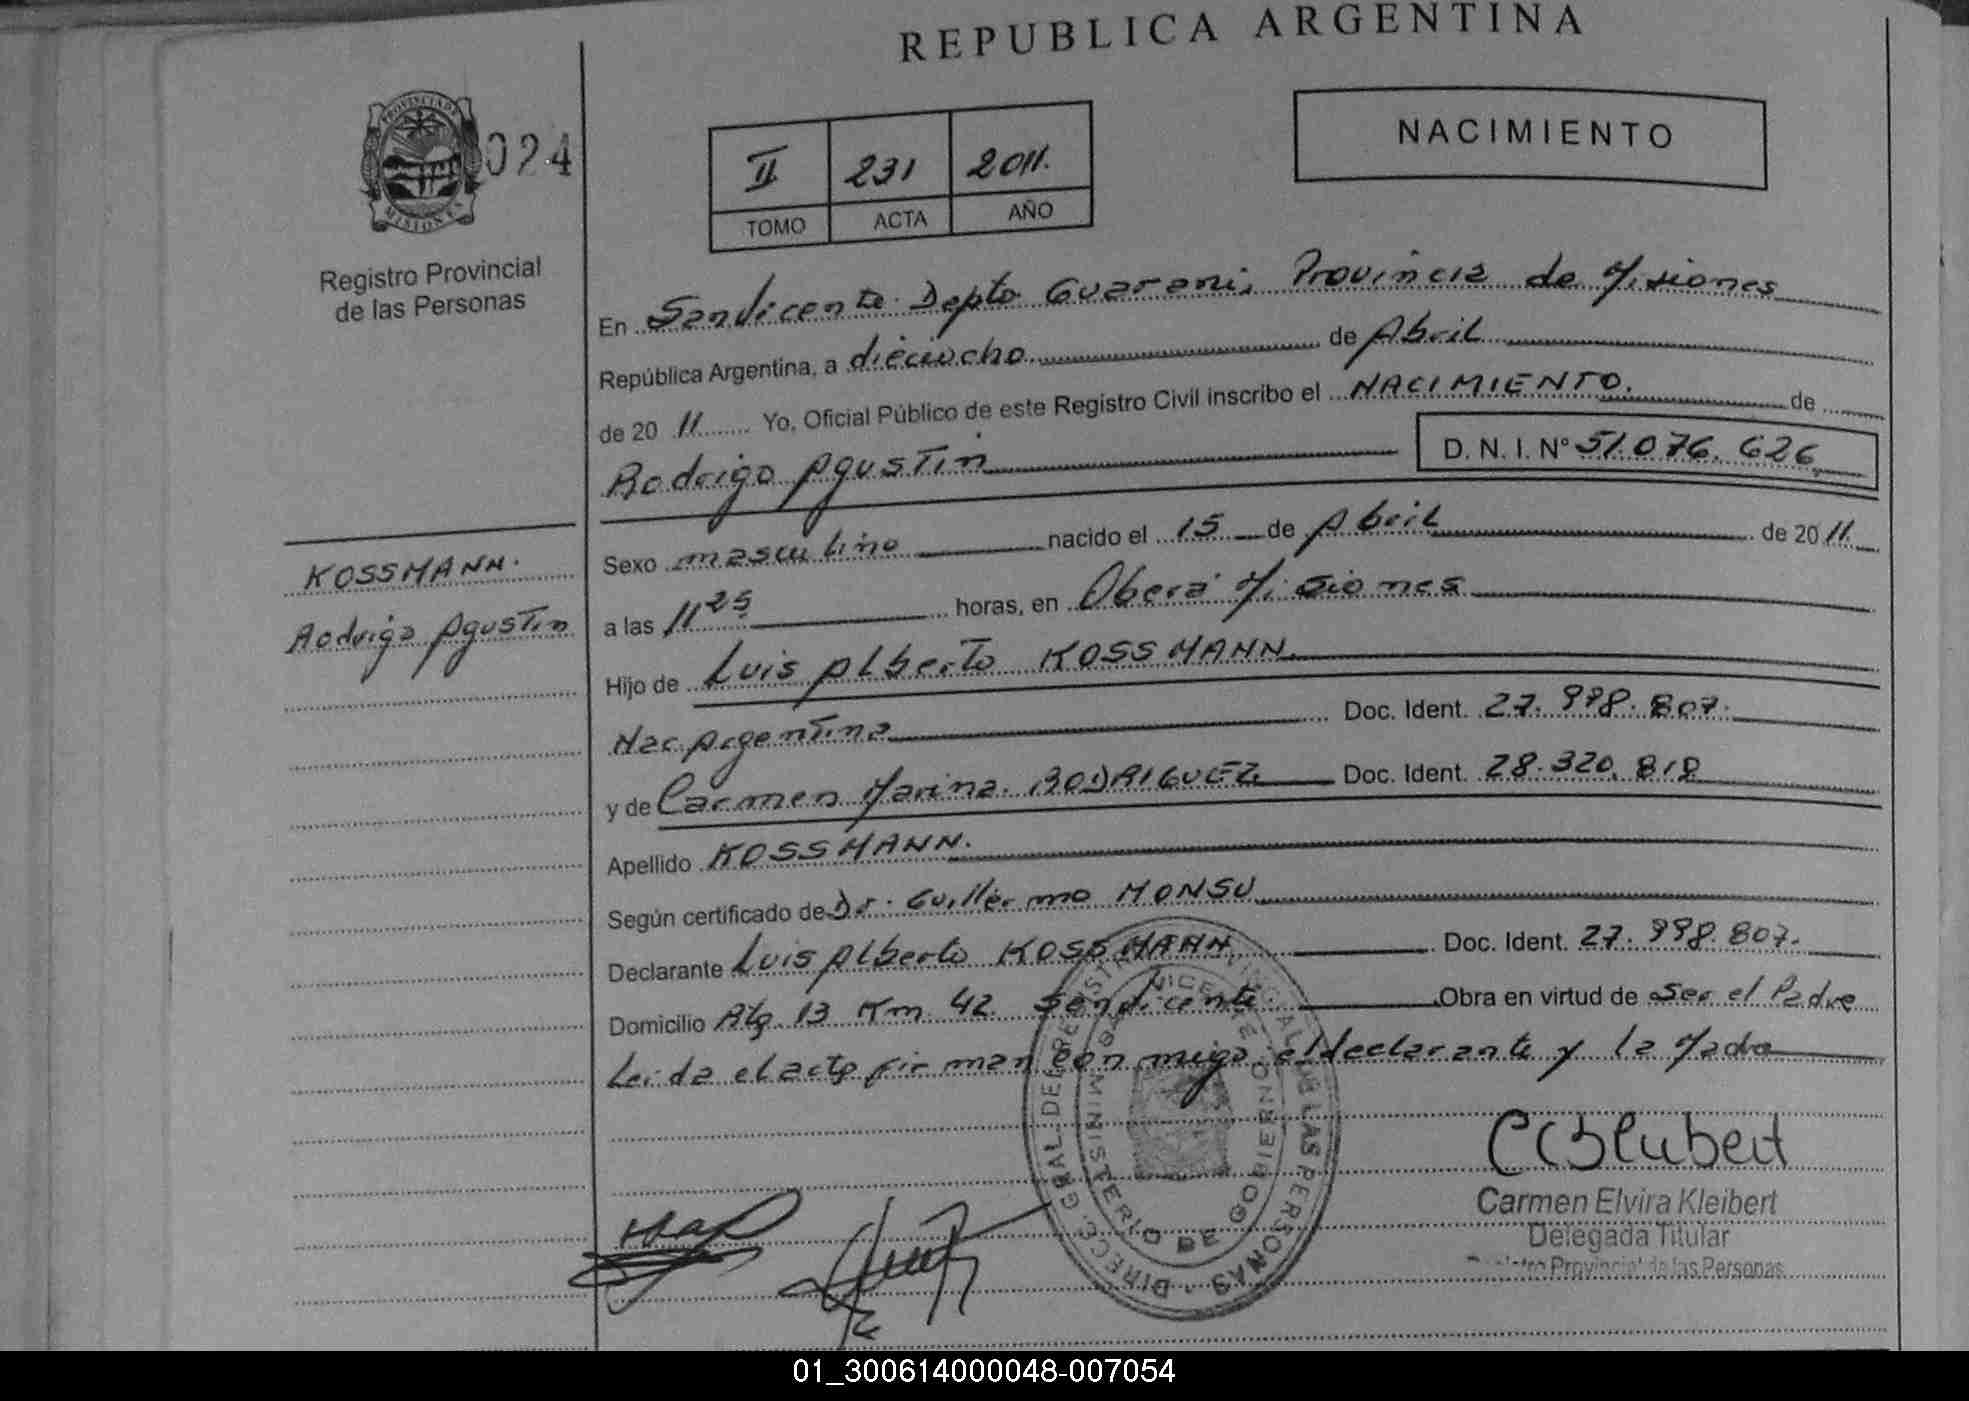 REPUBLICA ARGENTINA
PROVINCIA DE
MISIONES
024
Registro Provincial
de las Personas
II 231 2011.
TOMO ACTA AÑO
NACIMIENTO
En San Vicente Depto Guarani, Provincia de Misiones
República Argentina, a dieciocho de Abril
de 20 11 Yo, Oficial Público de este Registro Civil inscribo el NACIMIENTO. de
Rodrigo Agustin D. N. I. Nº 51.076.626
Sexo masculino nacido el 15 de Abril de 20 11.
a las 11 25 horas, en Oberá Misiones
Hijo de Luis Alberto KOSSMANN.
Nac. Argentina Doc. Ident. 27.998.807.
y de Carmen Marina RODRIGUEZ Doc. Ident. 28.320.818
Apellido KOSSMANN.
Según certificado de Dr. Guillermo MONSU
Declarante Luis Alberto KOSSMANN, Doc. Ident. 27.998.807.
Domicilio Rta 13 Km 42 San Vicente. Obra en virtud de Ser el Padre
Leida el acta firman conmigo el declarante y la Madre
KOSSMANN.
Rodrigo Agustin
DIRECC. GRAL. DEL REGISTRO PROVINCIAL DE LAS PERSONAS
MINISTERIO DE GOBIERNO
Carmen Elvira Kleibert
Delegada Titular
Provincial de las Personas
01_300614000048-007054